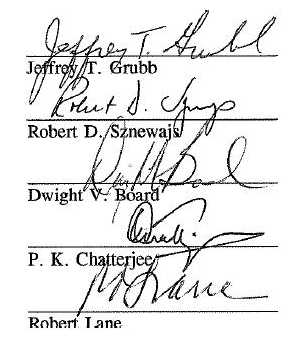 Jeffrey T. Grubb
Jeffrey T. Grubb
Robert D.
Robert D. Sznewajs
Dwight V. Board
P. K. Chatterjee
Lane
Robert Lane